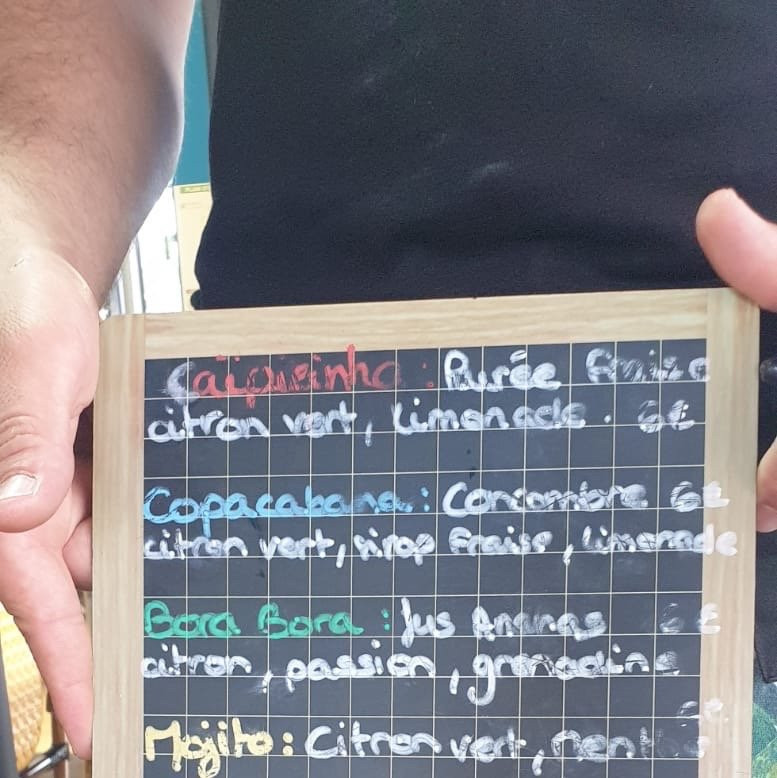 Caïpirinha : Purée Fraise
citron vert, limonade. 6€
Copacabana : Concombre 6€
citron vert, sirop Fraise, limonade
Bora Bora : Jus Ananas 6€
citron, passion, grenadine
6€
Mojito : Citron vert, menthe